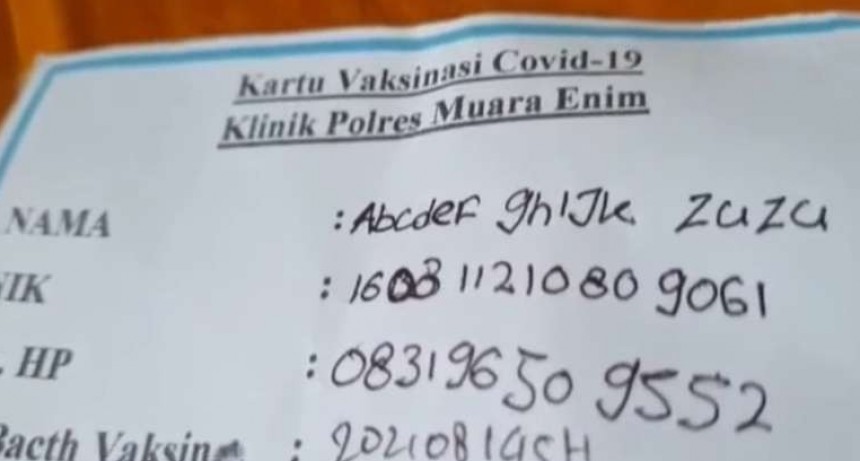 Kartu Vaksinasi Covid-19
Klinik Polres Muara Enim
NAMA : Abcdef ghIJk zuzu
NIK : 160811210809061
HP : 083196509552
Bacth Vaksin :